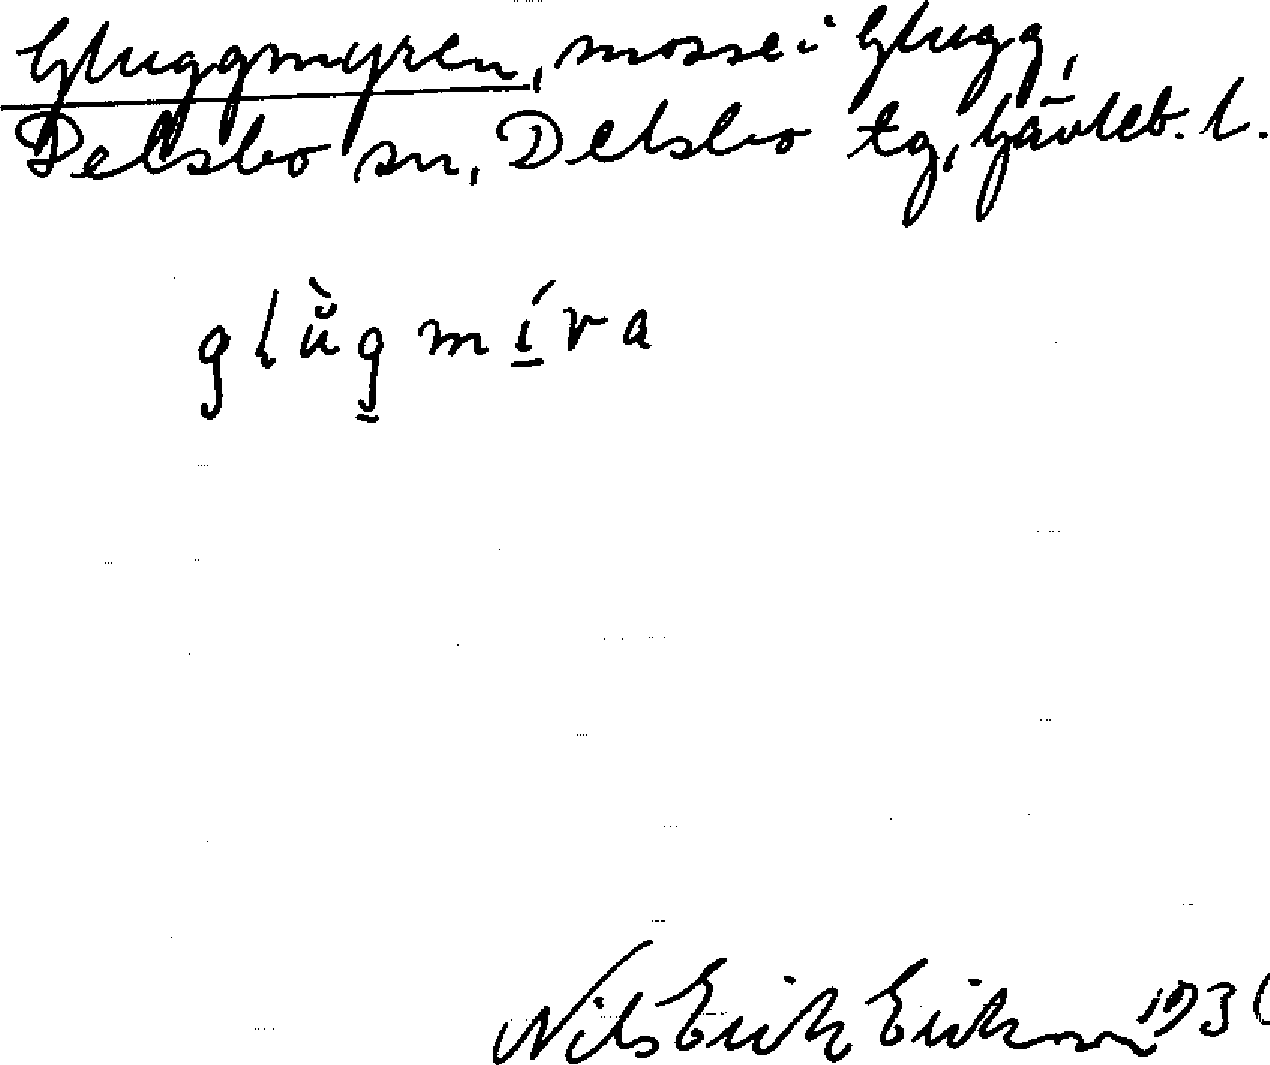 Gluggmyren, mosse i Glugg,
Delsbo sn, Delsbo tg, Gävleb. l.
glŭ̀g̠mí̠ra
Nils Erik Erikson